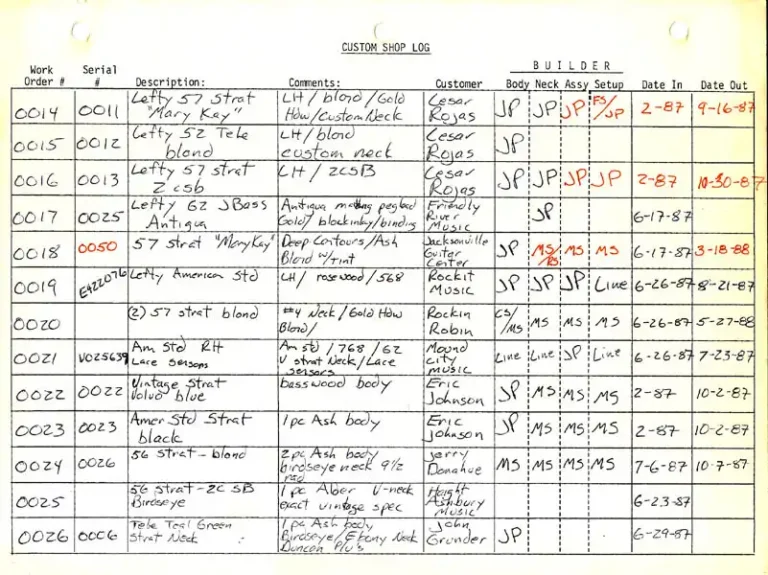 CUSTOM SHOP LOG
BUILDER
Work Order # Serial # Description: Comments: Customer Body Neck Assy Setup Date In Date Out
0014 0011 Lefty 57 Strat "Mary Kay" LH / blond / Gold Hdw / Custom Neck Cesar Rojas JP JP JP FS/JP 2-87 9-16-87
0015 0012 Lefty 52 Tele blond LH / blond custom neck Cesar Rojas JP
0016 0013 Lefty 57 strat 2 csb LH / 2CSB Cesar Rojas JP JP JP JP 2-87 10-30-87
0017 0025 Lefty 62 JBass Antigua Antigua peghead Gold / block inlay / binding Friendly River Music JP 6-17-87
0018 0050 57 strat "Mary Kay" Deep Contours / Ash Blond w/Tint Jacksonville Guitar Center JP MS/ MS MS 6-17-87 3-18-88
0019 E422076 Lefty American Std LH / rosewood / 568 Rockit Music JP JP JP Line 6-26-87 8-21-87
0020 (2) 57 strat blond #4 Neck / Gold Hdw Blond / Rockin Robin CS/MS MS MS MS 6-26-87 5-27-88
0021 V025639 Am Std RH Lace Sensors Am std / 768 / 62 V strat Neck / Lace sensors Mound City Music Line Line JP Line 6-26-87 7-23-87
0022 0022 Vintage Strat Volvo blue basswood body Eric Johnson JP MS MS MS 2-87 10-2-87
0023 0023 Amer Std Strat black 1pc Ash body Eric Johnson JP MS MS MS 2-87 10-2-87
0024 0026 56 strat - blond 2pc Ash body birdseye neck 9½ rad Jerry Donahue MS MS MS MS 7-6-87 10-7-87
0025 56 strat - 2C SB Birdseye 1 pc Alder V-neck exact vintage spec Haight Ashbury Music 6-23-87
0026 0006 Tele Teal Green Strat Neck 1 pc Ash body Birdseye / Ebony Neck Duncan Pu's John Grunder JP 6-29-87